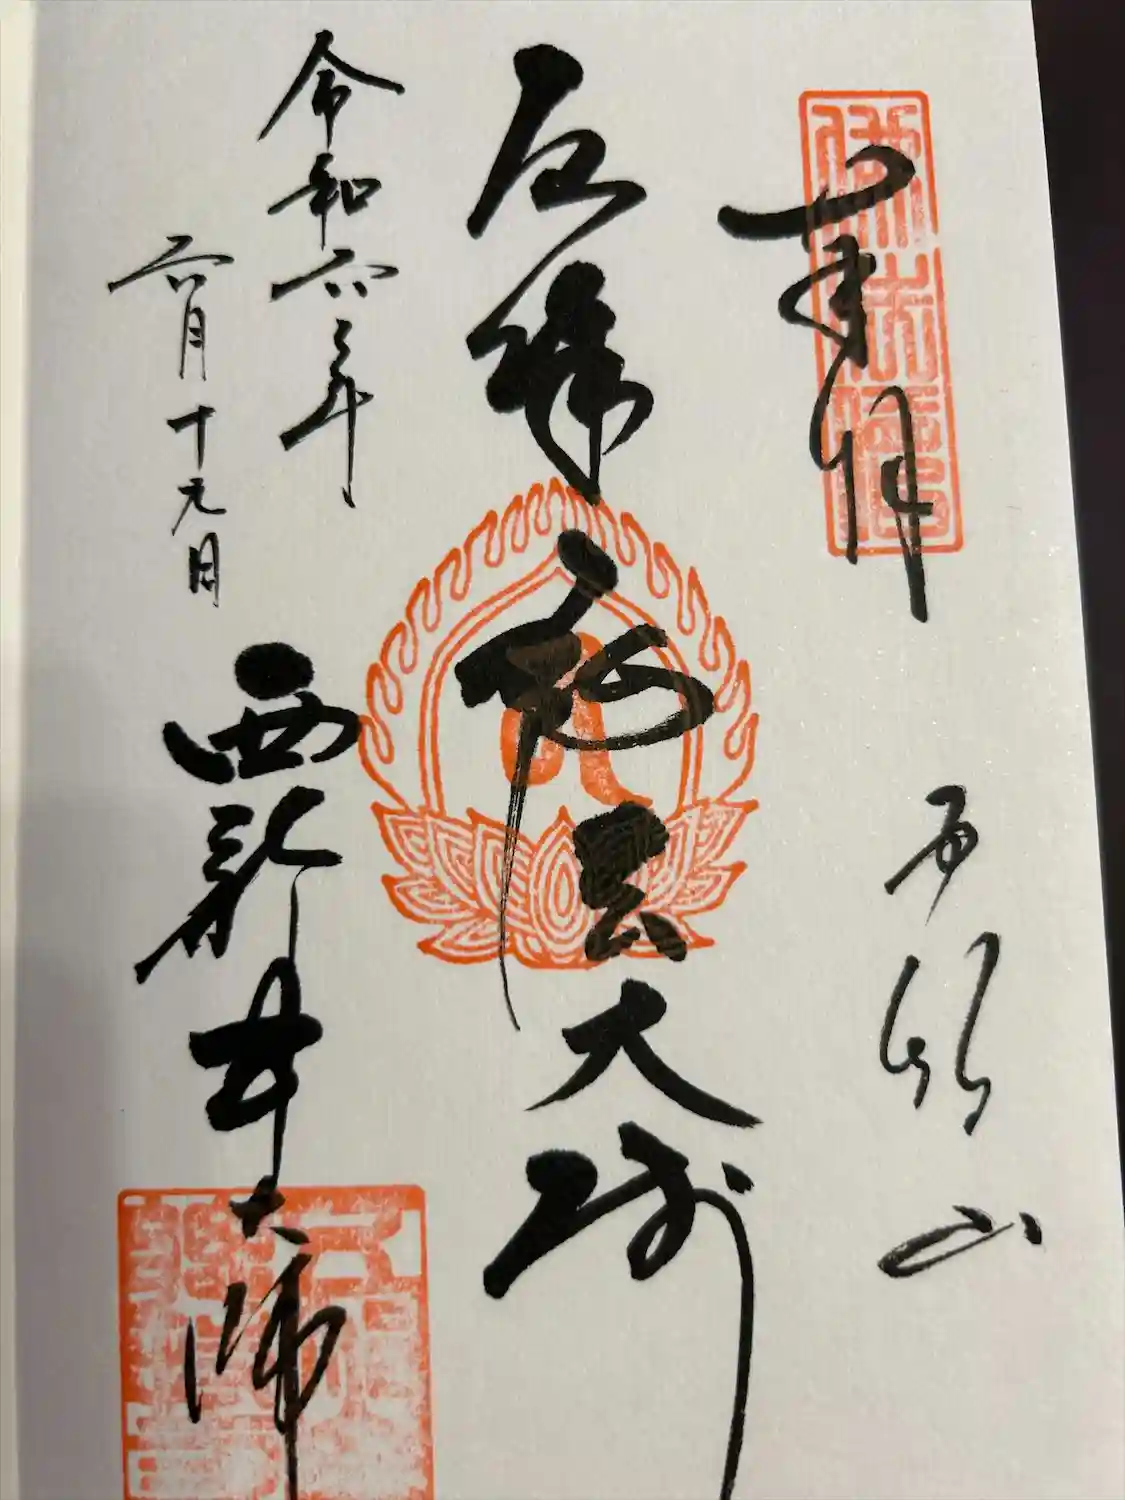 奉拝
厄除弘法大師
令和六年
六月十九日
西新井大師
佛法僧